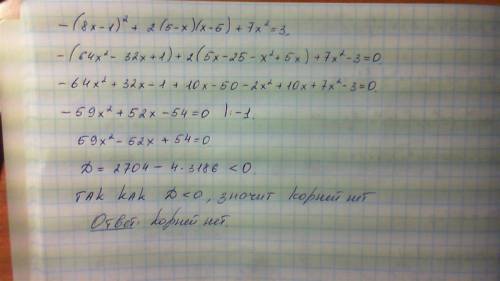 -(8x-1)² + 2(5-x)(x-5) + 7x² = 3.
-(64x² - 32x + 1) + 2(5x - 25 - x² + 5x) + 7x² - 3 = 0.
-64x² + 32x - 1 + 10x - 50 - 2x² + 10x + 7x² - 3 = 0.
-59x² + 52x - 54 = 0 |:-1.
59x² - 52x + 54 = 0
D = 2704 - 4·3186 < 0.
Так как D < 0, значит корней нет
Ответ: корней нет.